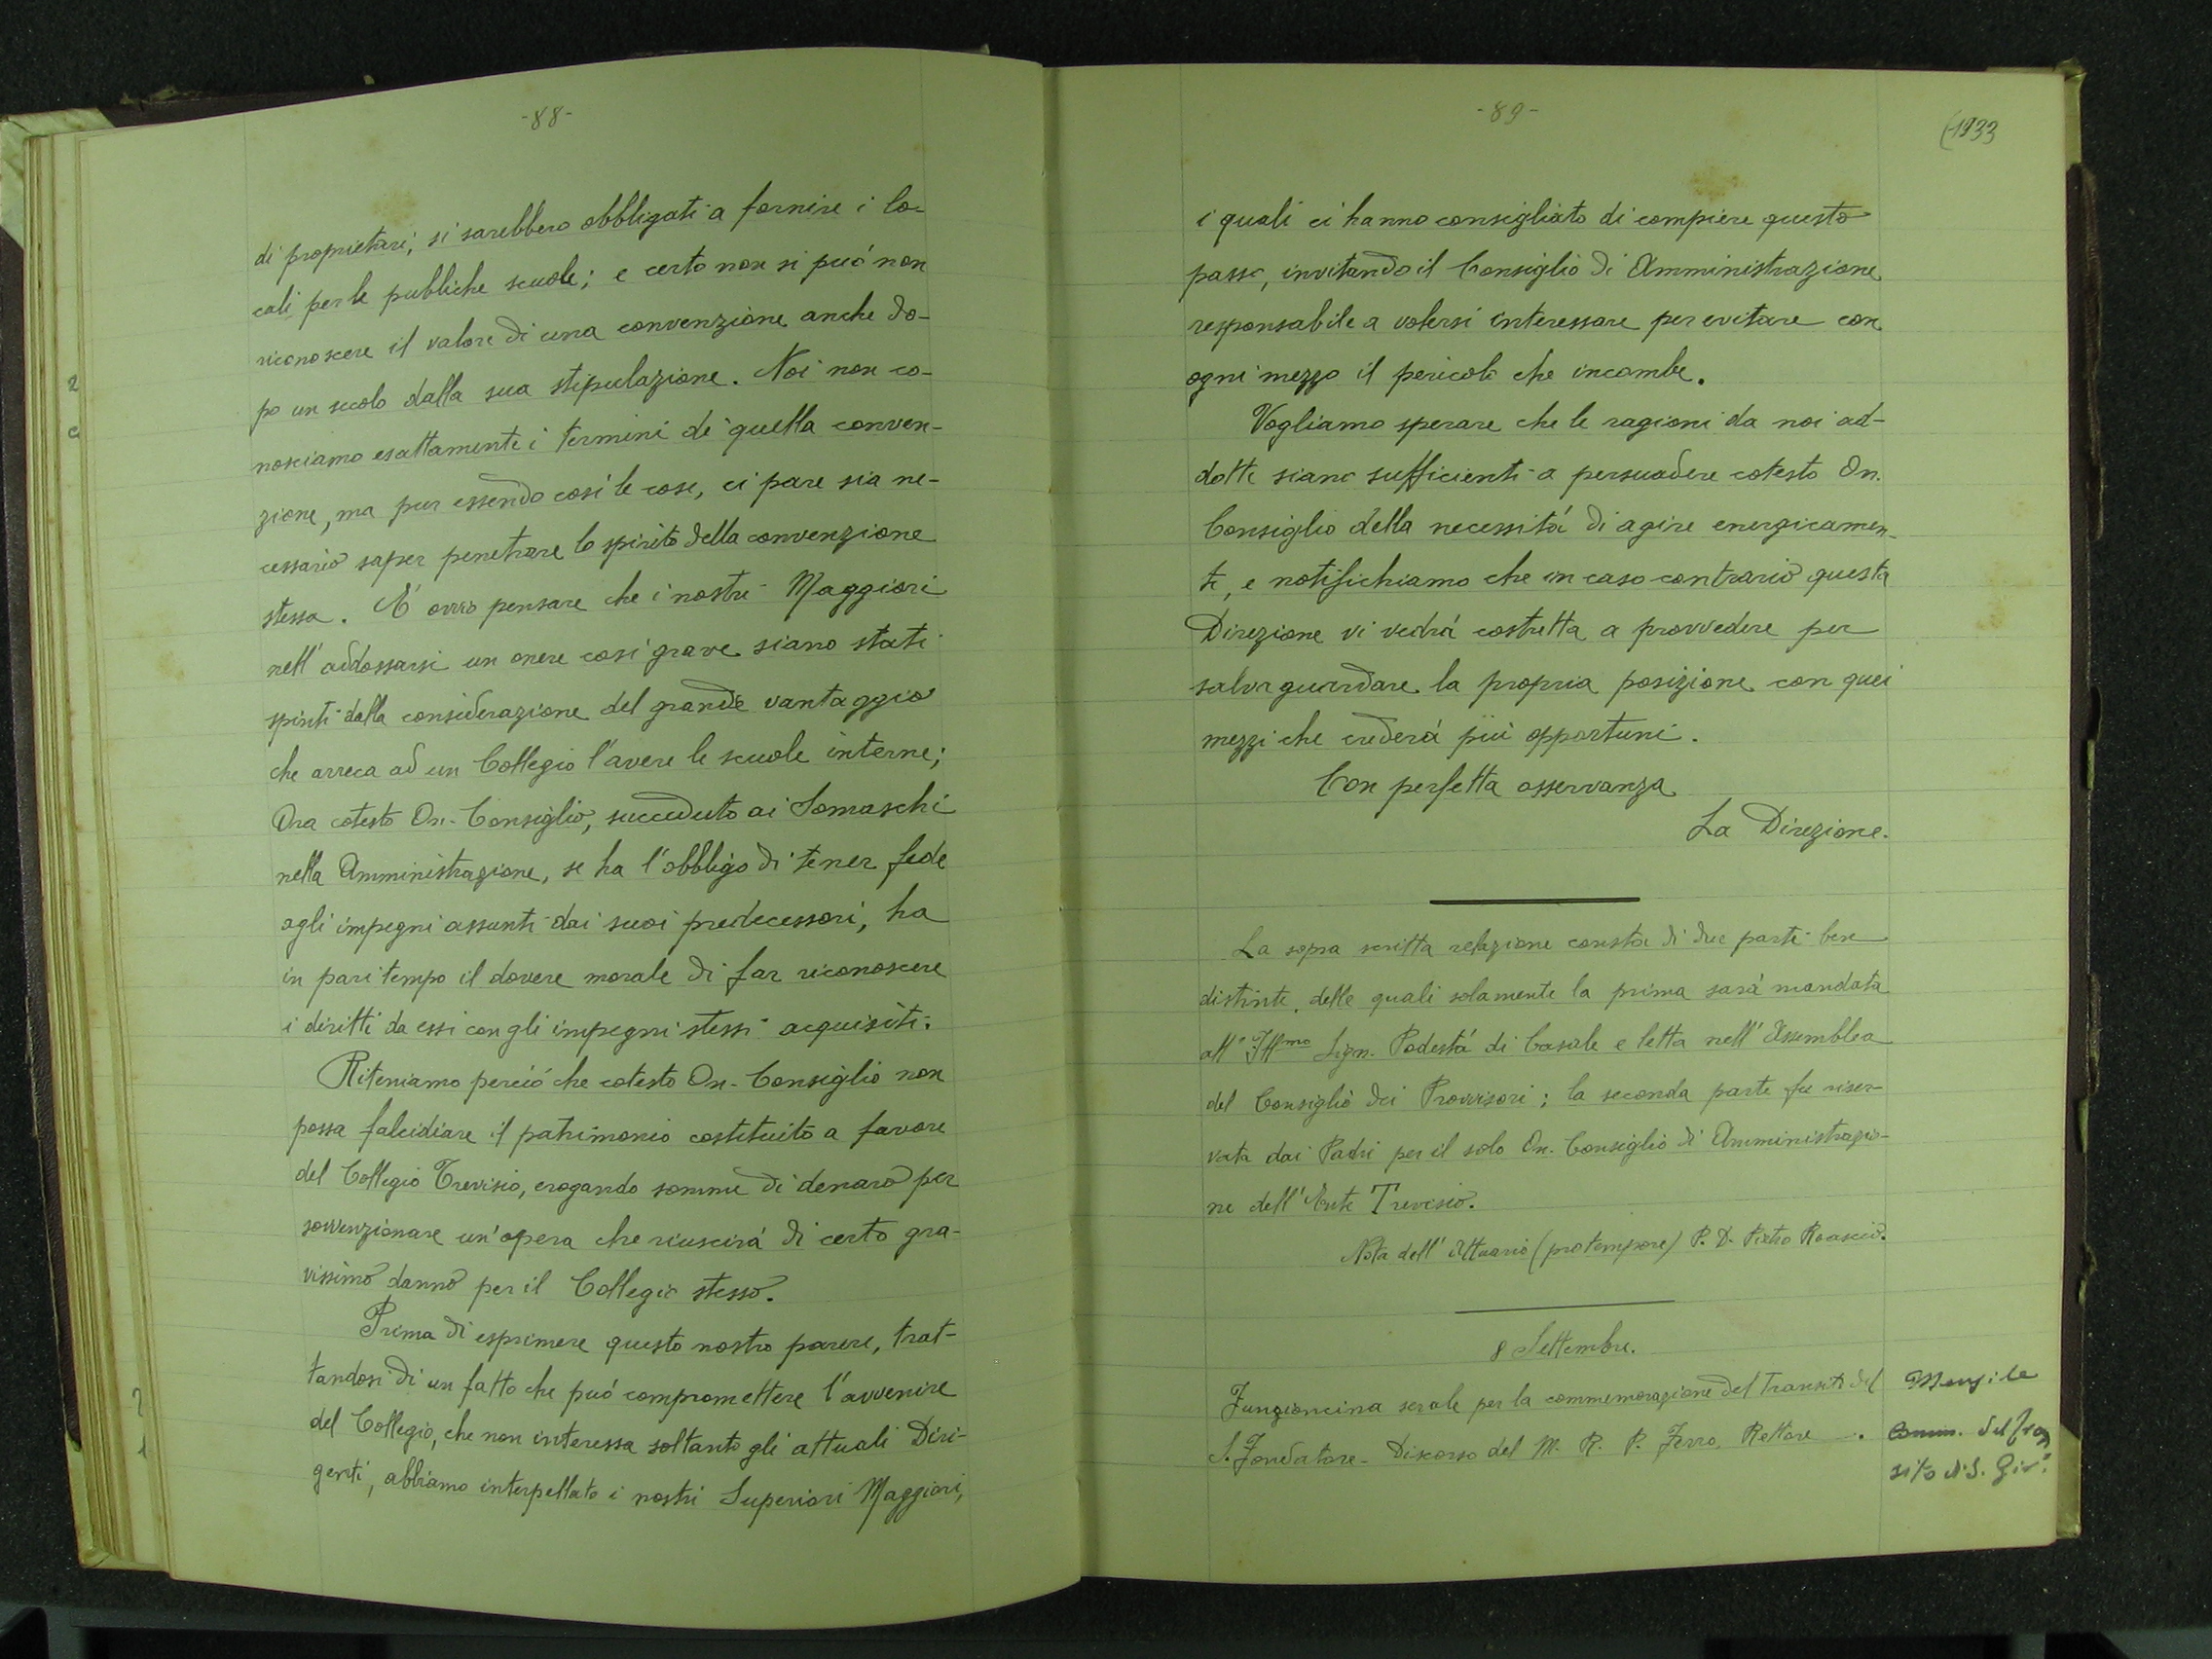 -88-
di proprietari, si sarebbero obbligati a fornire i lo-
cali per le pubbliche scuole; e certo non si può non
riconoscere il valore di una convenzione anche do-
po un secolo dalla sua stipulazione. Noi non co-
nosciamo esattamente i termini di quella conven-
zione, ma pur essendo così le cose, ci pare sia ne-
cessario saper penetrare lo spirito della convenzione
stessa. È ovvio pensare che i nostri Maggiori
nell'addossarsi un onere così grave siano stati
spinti dalla considerazione del grande vantaggio
che arreca ad un Collegio l'avere le scuole interne;
Ora cotesto On. Consiglio, succeduto ai Somaschi
nella Amministrazione, se ha l'obbligo di tener fede
agli impegni assunti dai suoi predecessori, ha
in pari tempo il dovere morale di far riconoscere
i diritti da essi con gli impegni stessi acquisiti.
Riteniamo perciò che cotesto On. Consiglio non
possa falcidiare il patrimonio costituito a favore
del Collegio Trevisio, erogando somme di denaro per
sovvenzionare un'opera che riuscirà di certo gra-
vissimo danno per il Collegio stesso.
Prima di esprimere questo nostro parere, trat-
tandosi di un fatto che può compromettere l'avvenire
del Collegio, che non interessa soltanto gli attuali Diri-
genti, abbiamo interpellato i nostri Superiori Maggiori,
-89-
(1933
i quali ci hanno consigliato di compiere questo
passo, invitando il Consiglio di Amministrazione
responsabile a volersi interessare per evitare con
ogni mezzo il pericolo che incombe.
Vogliamo sperare che le ragioni da noi ad-
dotte siano sufficienti a persuadere cotesto On.
Consiglio della necessità di agire energicamen-
te, e notifichiamo che in caso contrario questa
Direzione vi vedrà costretta a provvedere per
salvaguardare la propria posizione con quei
mezzi che crederà più opportuni.
Con perfetta osservanza
La Direzione.
La sopra scritta relazione consta di due parti ben
distinte, delle quali solamente la prima sarà mandata
all'Ill.mo Sign. Podestà di Casale e letta nell'Assemblea
del Consiglio dei Provvisori; la seconda parte fu riser-
vata dai Padri per il solo On. Consiglio di Amministrazio-
ne dell'Ente Trevisio.
Nota dell'Attuario (pro tempore) P. D. Pietro Roascio.
8 Settembre.
Funzioncina serale per la commemorazione del Transito del
S. Fondatore - Discorso del M. R. P. Ferro, Rettore -.
Mensile
Comm. del tran
sito di S. Gir.